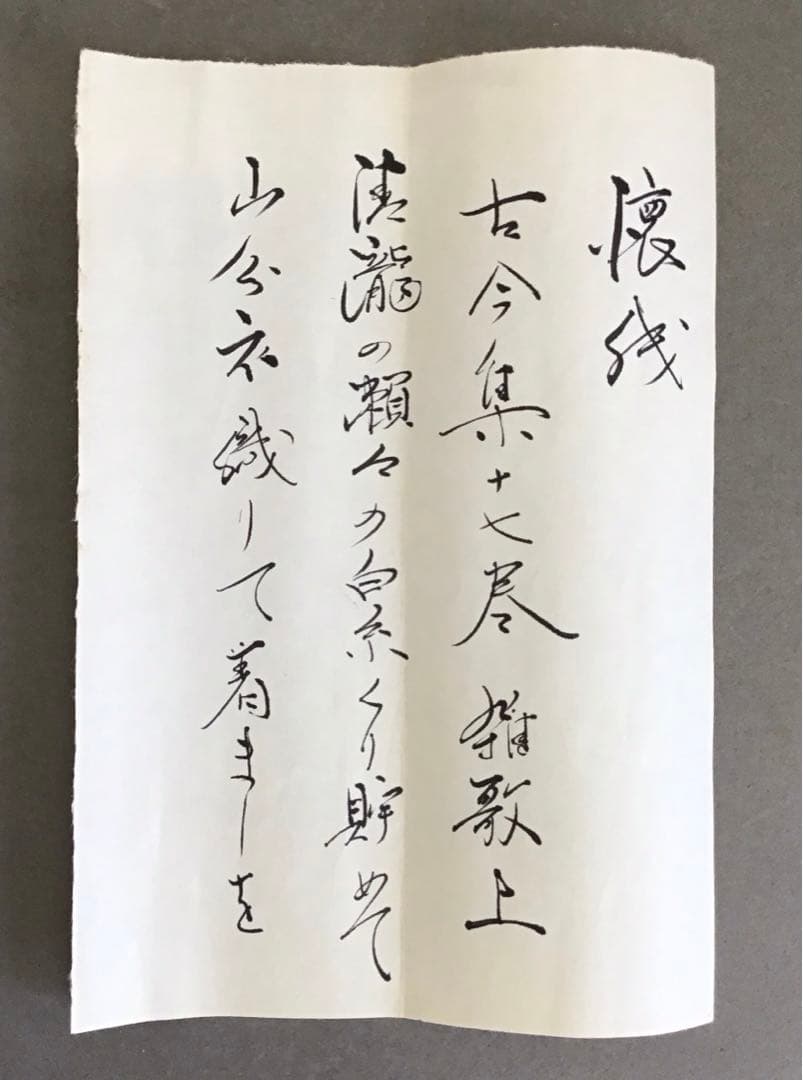 懐銭
古今集十七巻 雑歌上
清瀧の瀬々の白糸くり貯めて
山分衣織りて着ましを